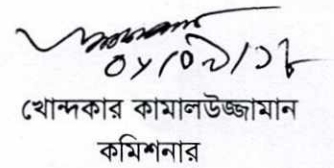 ০১/০৯/১৮
খোন্দকার কামালউজ্জামান
কমিশনার